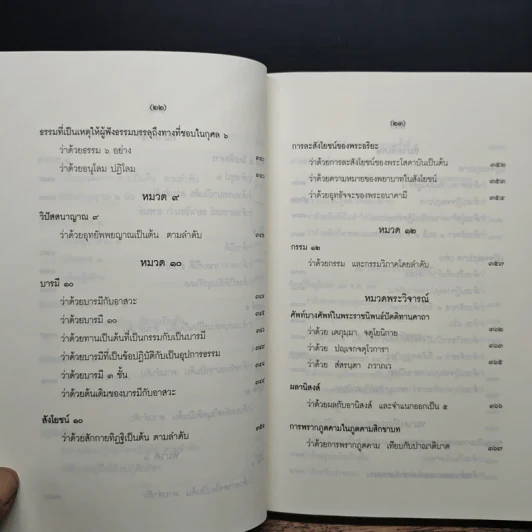 (๒๒)
ธรรมที่เป็นเหตุให้ผู้ฟังธรรมบรรลุถึงทางที่ชอบในกุศล ๖
ว่าด้วยธรรม ๖ อย่าง
ว่าด้วยอนุโลม ปฏิโลม
หมวด ๙
วิปัสสนาญาณ ๙
ว่าด้วยอุทยัพพยญาณเป็นต้น ตามลำดับ
หมวด ๑๐
บารมี ๑๐
ว่าด้วยบารมีกับอาสวะ
ว่าด้วยบารมี ๑๐
ว่าด้วยทานเป็นต้นที่เป็นกรรมกับเป็นบารมี
ว่าด้วยบารมีที่เป็นข้อปฏิบัติกับเป็นอุปการธรรม
ว่าด้วยบารมี ๓ ชั้น
ว่าด้วยต้นเดิมของบารมีกับอาสวะ
สังโยชน์ ๑๐
ว่าด้วยสักกายทิฏฐิเป็นต้น ตามลำดับ
(๒๓)
การละสังโยชน์ของพระอริยะ
ว่าด้วยการละสังโยชน์ของพระโสดาบันเป็นต้น ๓๕๒
ว่าด้วยความหมายของพยาบาทในสังโยชน์ ๓๕๔
ว่าด้วยอุทธัจจะของพระอนาคามี ๓๕๔
หมวด ๑๒
กรรม ๑๒
ว่าด้วยกรรม และกรรมวิภาคโดยลำดับ ๓๕๗
หมวดพระวิจารณ์
ศัพท์บางศัพท์ในพระราชนิพนธ์ปัตติทานคาถา
ว่าด้วย เตภุมฺมา จตุโยนิกาย ๓๖๒
ว่าด้วย ปญฺเจกจตุโวการา ๓๖๓
ว่าด้วย สํสรนฺตา ภวาภเว ๓๖๕
ผลานิสงส์
ว่าด้วยผลกับอานิสงส์ และจำแนกออกเป็น ๕ ๓๖๖
การพรากภูตคามในภูตคามสิกขาบท
ว่าด้วยการพรากภูตคาม เทียบกับปาณาติบาต ๓๖๗